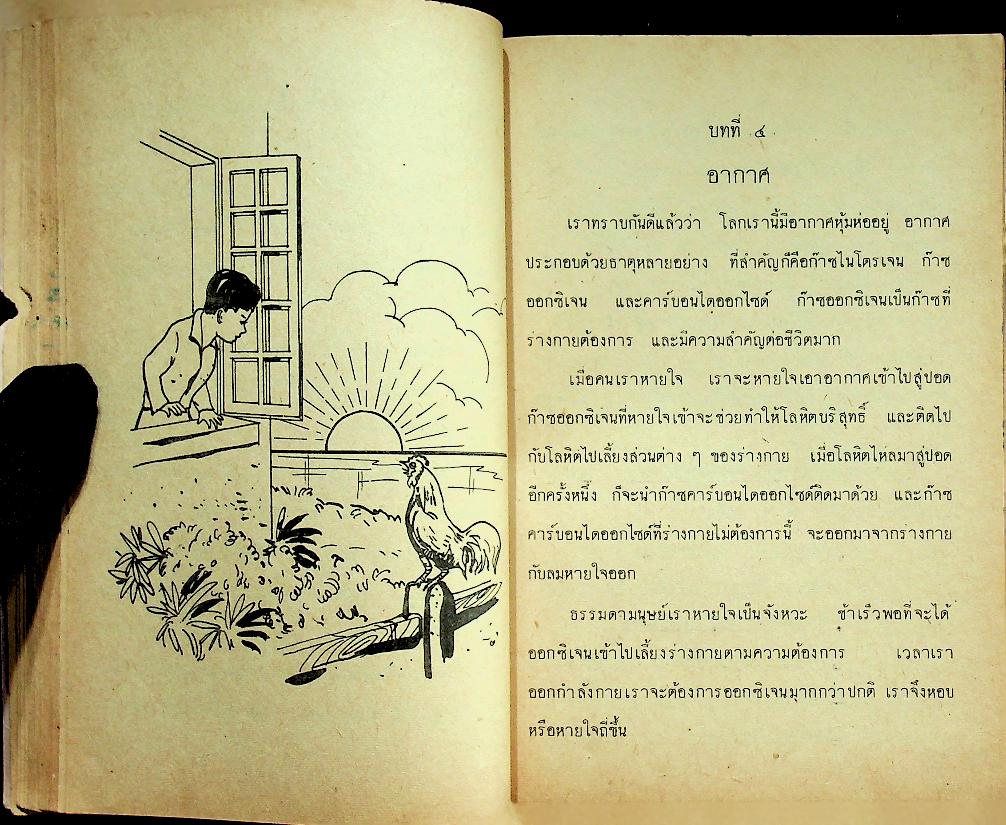 บทที่ ๔
อากาศ
เราทราบกันดีแล้วว่า โลกเรานี้มีอากาศหุ้มห่ออยู่ อากาศ
ประกอบด้วยธาตุหลายอย่าง ที่สำคัญก็คือก๊าซไนโตรเจน ก๊าซ
ออกซิเจน และคาร์บอนไดออกไซด์ ก๊าซออกซิเจนเป็นก๊าซที่
ร่างกายต้องการ และมีความสำคัญต่อชีวิตมาก
เมื่อคนเราหายใจ เราจะหายใจเอาอากาศเข้าไปสู่ปอด
ก๊าซออกซิเจนที่หายใจเข้าจะช่วยทำให้โลหิตบริสุทธิ์ และติดไป
กับโลหิตไปเลี้ยงส่วนต่าง ๆ ของร่างกาย เมื่อโลหิตไหลมาสู่ปอด
อีกครั้งหนึ่ง ก็จะนำก๊าซคาร์บอนไดออกไซด์ติดมาด้วย และก๊าซ
คาร์บอนไดออกไซด์ที่ร่างกายไม่ต้องการนี้ จะออกมาจากร่างกาย
กับลมหายใจออก
ธรรมดามนุษย์เราหายใจเป็นจังหวะ ช้าเร็วพอที่จะได้
ออกซิเจนเข้าไปเลี้ยงร่างกายตามความต้องการ เวลาเรา
ออกกำลังกายเราจะต้องการออกซิเจนมากกว่าปกติ เราจึงหอบ
หรือหายใจถี่ขึ้น